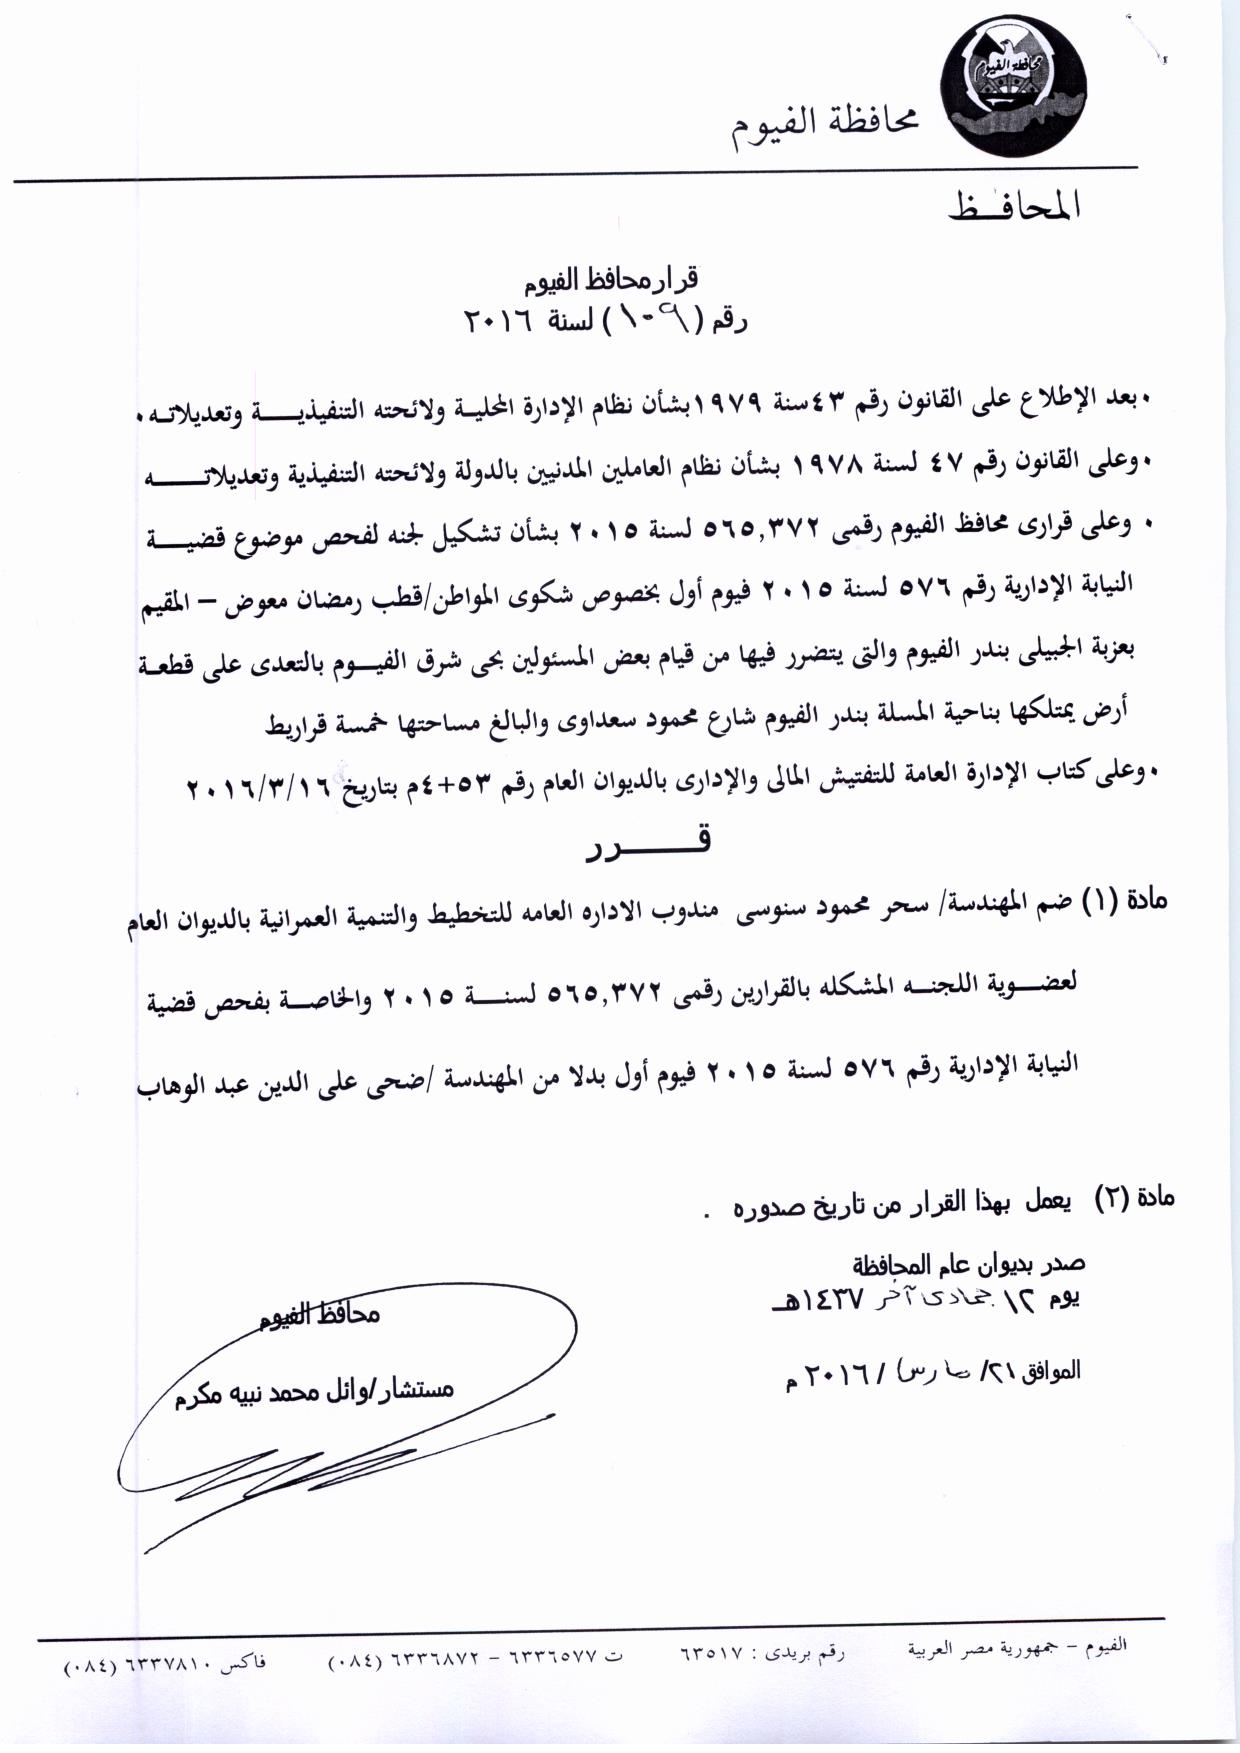 محافظة الفيوم
محافظة الفيوم
المحافــظ
قرار محافظ الفيوم
رقم (١٠٩) لسنة ٢٠١٦
• بعد الإطلاع على القانون رقم ٤٣ سنة ١٩٧٩ بشأن نظام الإدارة المحلية ولائحته التنفيذيــــة وتعديلاتـه •
• وعلى القانون رقم ٤٧ لسنة ١٩٧٨ بشأن نظام العاملين المدنيين بالدولة ولائحته التنفيذية وتعديلاتـــــه
• وعلى قرارى محافظ الفيوم رقمى ٥٦٥,٣٧٢ لسنة ٢٠١٥ بشأن تشكيل لجنه لفحص موضوع قضيـــة
النيابة الإدارية رقم ٥٧٦ لسنة ٢٠١٥ فيوم أول بخصوص شكوى المواطن/قطب رمضان معوض – المقيم
بعزبة الجبيلى بندر الفيوم والتى يتضرر فيها من قيام بعض المسئولين بحى شرق الفيـــوم بالتعدى على قطعـة
أرض يمتلكها بناحية المسلة بندر الفيوم شارع محمود سعداوى والبالغ مساحتها خمسة قراريط
• وعلى كتاب الإدارة العامة للتفتيش المالى والإدارى بالديوان العام رقم ٥٣+٤م بتاريخ ٢٠١٦/٣/١٦
قــــــرر
مادة (١) ضم المهندسة/ سحر محمود سنوسى مندوب الاداره العامه للتخطيط والتنمية العمرانية بالديوان العام
لعضــوية اللجنــه المشكله بالقرارين رقمى ٥٦٥,٣٧٢ لسنـــة ٢٠١٥ والخاصــة بفحص قضية
النيابة الإدارية رقم ٥٧٦ لسنة ٢٠١٥ فيوم أول بدلا من المهندسة /ضحى على الدين عبد الوهاب
مادة (٢) يعمل بهذا القرار من تاريخ صدوره .
صدر بديوان عام المحافظة
يوم ١٢ جمادى آخر ١٤٣٧هـ
الموافق ٢١/ مارس/ ٢٠١٦ م
محافظ الفيوم
مستشار/وائل محمد نبيه مكرم
الفيوم – جمهورية مصر العربية رقم بريدى : ٦٣٥١٧ ت ٦٣٣٦٥٧٧ – ٦٣٣٦٨٧٢ (٠٨٤) فاكس ٦٣٣٧٨١٠ (٠٨٤)